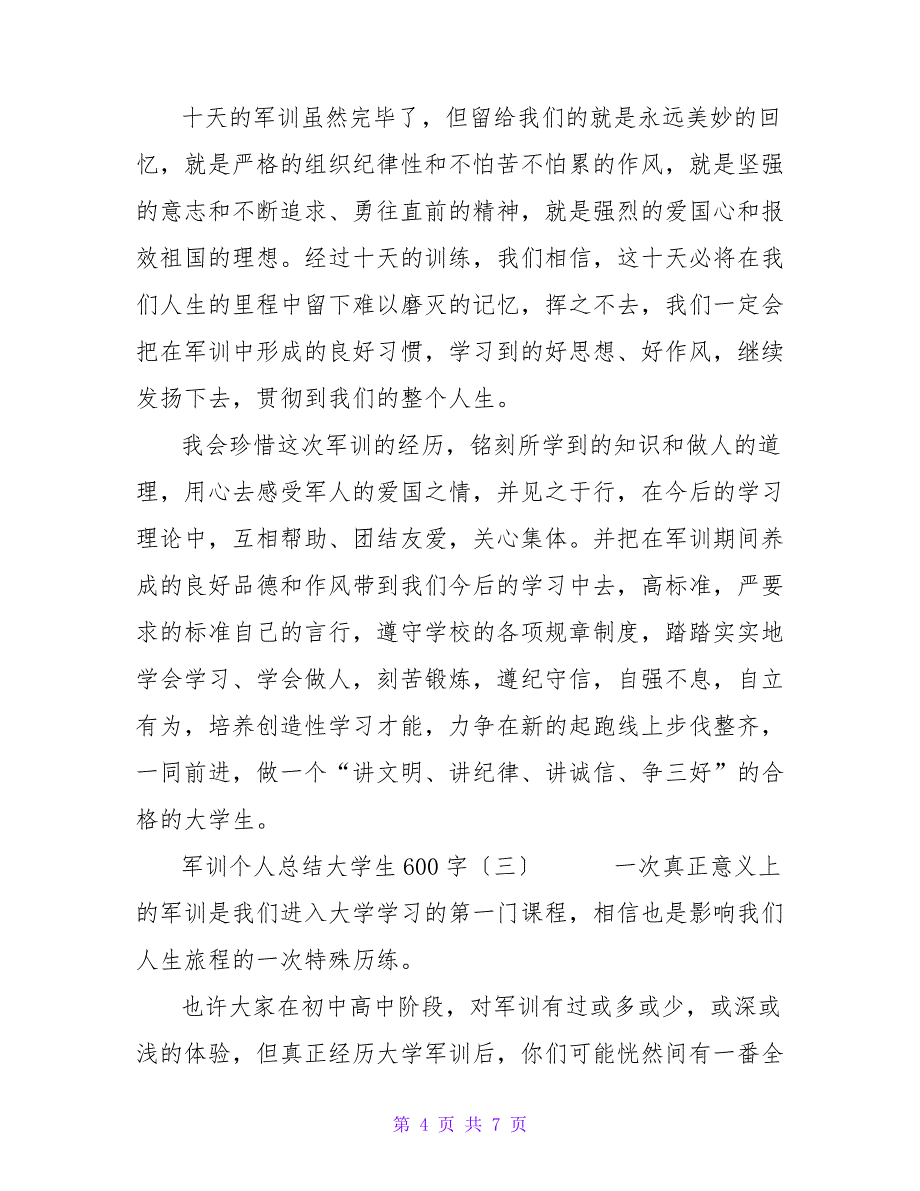 十天的军训虽然完毕了，但留给我们的就是永远美妙的回
忆，就是严格的组织纪律性和不怕苦不怕累的作风，就是坚强
的意志和不断追求、勇往直前的精神，就是强烈的爱国心和报
效祖国的理想。经过十天的训练，我们相信，这十天必将在我
们人生的里程中留下难以磨灭的记忆，挥之不去，我们一定会
把在军训中形成的良好习惯，学习到的好思想、好作风，继续
发扬下去，贯彻到我们的整个人生。
我会珍惜这次军训的经历，铭刻所学到的知识和做人的道
理，用心去感受军人的爱国之情，并见之于行，在今后的学习
理论中，互相帮助、团结友爱，关心集体。并把在军训期间养
成的良好品德和作风带到我们今后的学习中去，高标准，严要
求的标准自己的言行，遵守学校的各项规章制度，踏踏实实地
学会学习、学会做人，刻苦锻炼，遵纪守信，自强不息，自立
有为，培养创造性学习才能，力争在新的起跑线上步伐整齐，
一同前进，做一个“讲文明、讲纪律、讲诚信、争三好”的合
格的大学生。
军训个人总结大学生 600 字〔三〕 一次真正意义上
的军训是我们进入大学学习的第一门课程，相信也是影响我们
人生旅程的一次特殊历练。
也许大家在初中高中阶段，对军训有过或多或少，或深或
浅的体验，但真正经历大学军训后，你们可能恍然间有一番全
第 4 页 共 7 页